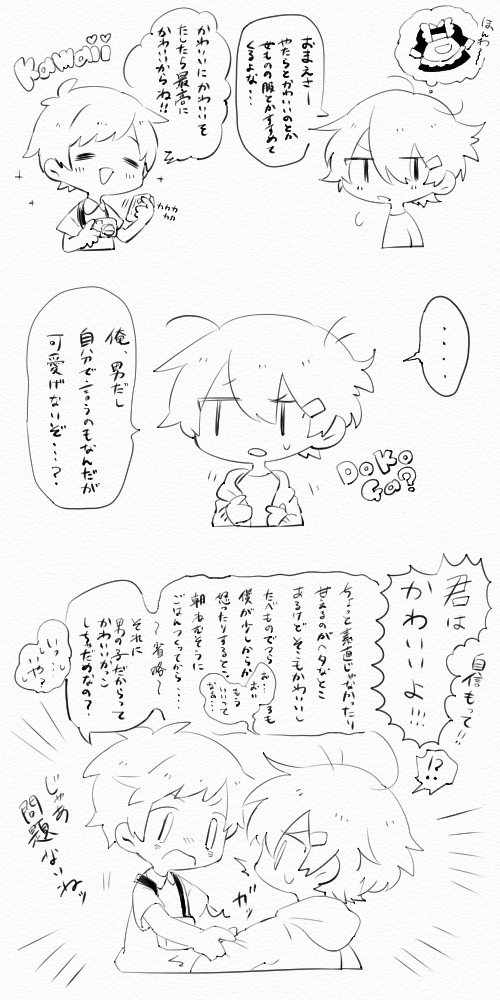 ほんわ〜
おまえさー
やたらとかわいいのとか
女ものの服とかすすめて
くるよな・・・
かわいいにかわいいを
たしたら最高に
かわいいからね!!
Kawaii
カカカ
カカ
・・・・
DoKo
Ga?
俺、男だし
自分で言うのもなんだが
可愛げないぞ・・・?
君は
かわいいよ!!!
自信もって!!
!?
ちょっと素直じゃなかったり
甘えるのがヘタなとこ
あるけどそこもかわいいし
たべものでつら
れるとこも
僕が少しからか
怒ったりするとこ
朝ねむそうに
ごはんつくってから・・・・
〜省略〜
お…
おい
もう
いいって
なぁ…
それに
男の子だからって
かわいいがっこ
しちゃだめなの?
いっ…
いや?
ガッ
じゃあ
問題
ないねッ